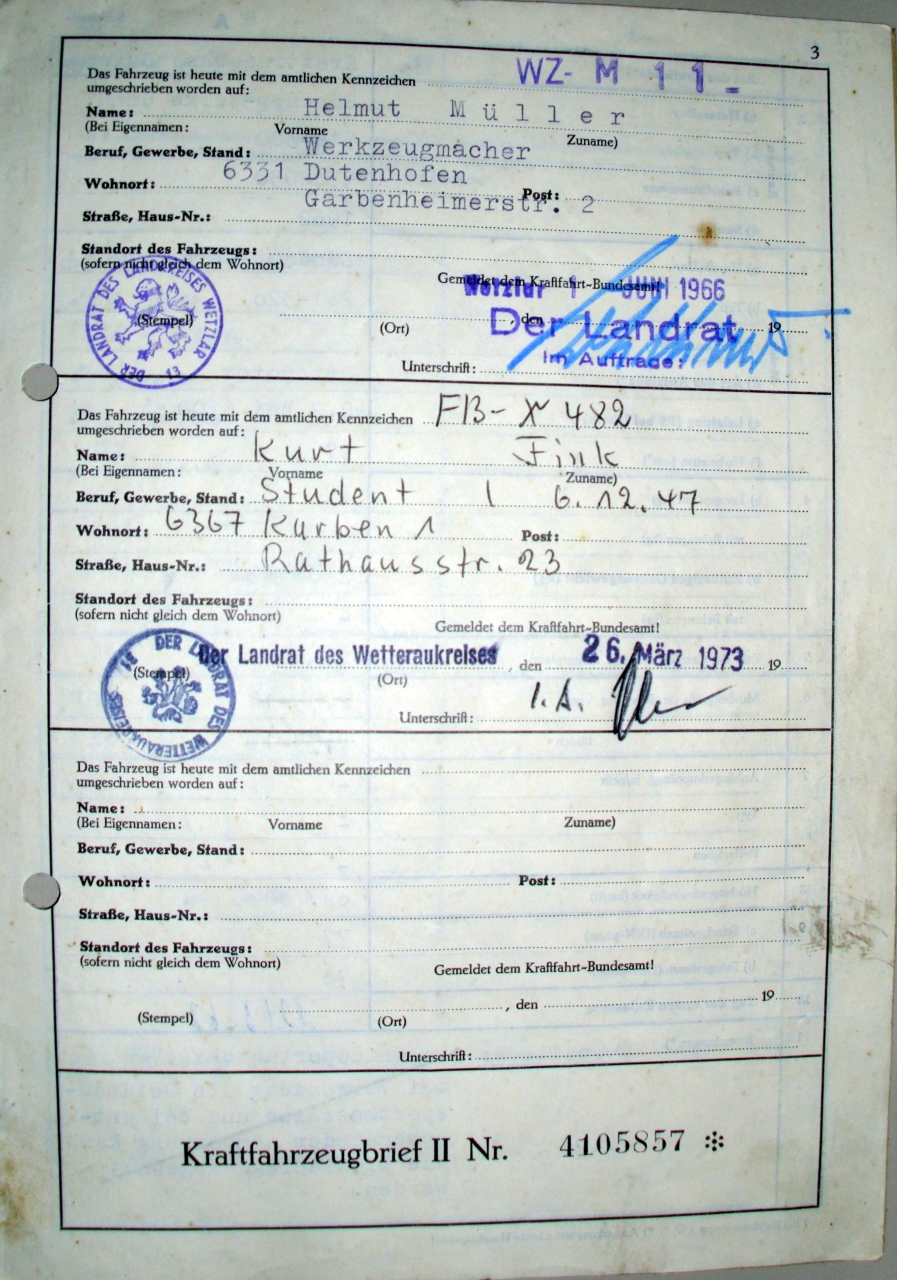 3
Das Fahrzeug ist heute mit dem amtlichen Kennzeichen WZ- M 11 -
umgeschrieben worden auf:
Name: Helmut Müller
(Bei Eigennamen: Vorname Zuname)
Beruf, Gewerbe, Stand: Werkzeugmacher
Wohnort: 6331 Dutenhofen Post:
Straße, Haus-Nr.: Garbenheimerstr. 2
Standort des Fahrzeugs:
(sofern nicht gleich dem Wohnort)
Gemeldet dem Kraftfahrt-Bundesamt!
DER LANDRAT DES LANDKREISES WETZLAR 13
Wetzlar 1 JUNI 1966
(Stempel) (Ort) den 19
Der Landrat
Im Auftrage:
Unterschrift:
Das Fahrzeug ist heute mit dem amtlichen Kennzeichen FB- X 482
umgeschrieben worden auf:
Name: Kurt Fink
(Bei Eigennamen: Vorname Zuname)
Beruf, Gewerbe, Stand: Student | 6.12.47
Wohnort: 6367 Karben 1 Post:
Straße, Haus-Nr.: Rathausstr. 23
Standort des Fahrzeugs:
(sofern nicht gleich dem Wohnort)
Gemeldet dem Kraftfahrt-Bundesamt!
DER LANDRAT DES WETTERAUKREISES
Der Landrat des Wetteraukreises, den 26. März 1973 19
(Stempel) (Ort)
Unterschrift: I.A.
Das Fahrzeug ist heute mit dem amtlichen Kennzeichen
umgeschrieben worden auf:
Name:
(Bei Eigennamen: Vorname Zuname)
Beruf, Gewerbe, Stand:
Wohnort: Post:
Straße, Haus-Nr.:
Standort des Fahrzeugs:
(sofern nicht gleich dem Wohnort)
Gemeldet dem Kraftfahrt-Bundesamt!
, den 19
(Stempel) (Ort)
Unterschrift:
Kraftfahrzeugbrief II Nr. 4105857